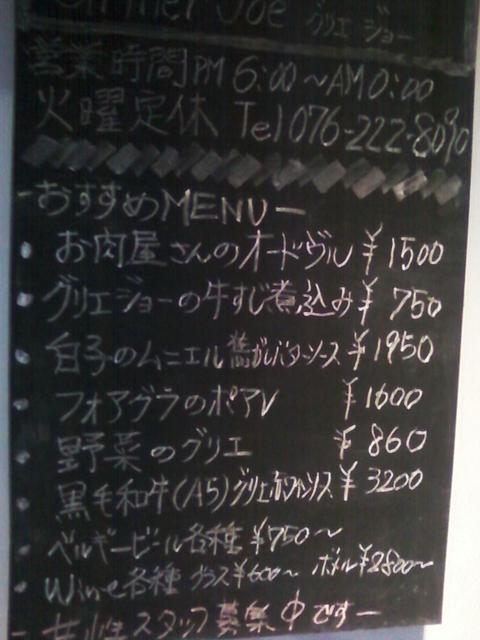 Joe グリエ ジョー
営業時間PM 6:00〜AM0:00
火曜定休 Tel 076-222-8090
-おすすめMENU-
・お肉屋さんのオードヴル ¥1500
・グリエジョーの牛すじ煮込み ¥750
・白子のムニエル 焦がしバターソース ¥1950
・フォアグラのポアレ ¥1600
・野菜のグリエ ¥860
・黒毛和牛(A5)グリエ赤ワインソース ¥3200
・ベルギービール各種 ¥750〜
・Wine各種 グラス¥600〜 ボトル¥2800〜
-女性スタッフ募集中です-